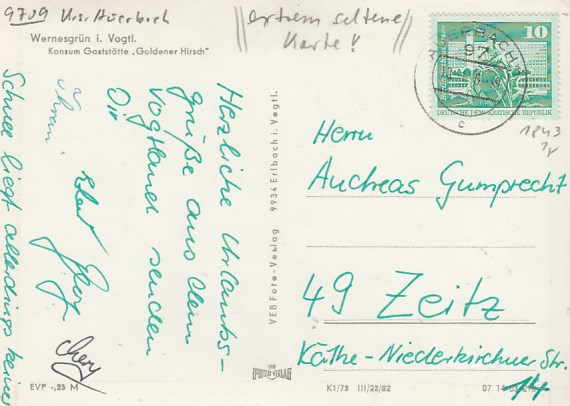 9709 Krs. Auerbach
Wernesgrün i. Vogtl.
Konsum Gaststätte „Goldener Hirsch"
extrem seltene
Karte!
AUERBACH
97
c
10
DEUTSCHE DEMOKRATISCHE REPUBLIK
1843
Herzliche Urlaubs-
grüße aus dem
Vogtland senden
Dir
Schnee liegt allerdings keiner
VEB Foto-Verlag 9934 Erlbach i. Vogtl.
Herrn
Andreas Gumprecht
49 Zeitz
Käthe-Niederkirchner Str.
14
EVP -,25 M
FOTO VERLAG
K1/78 III/23/82
07 14